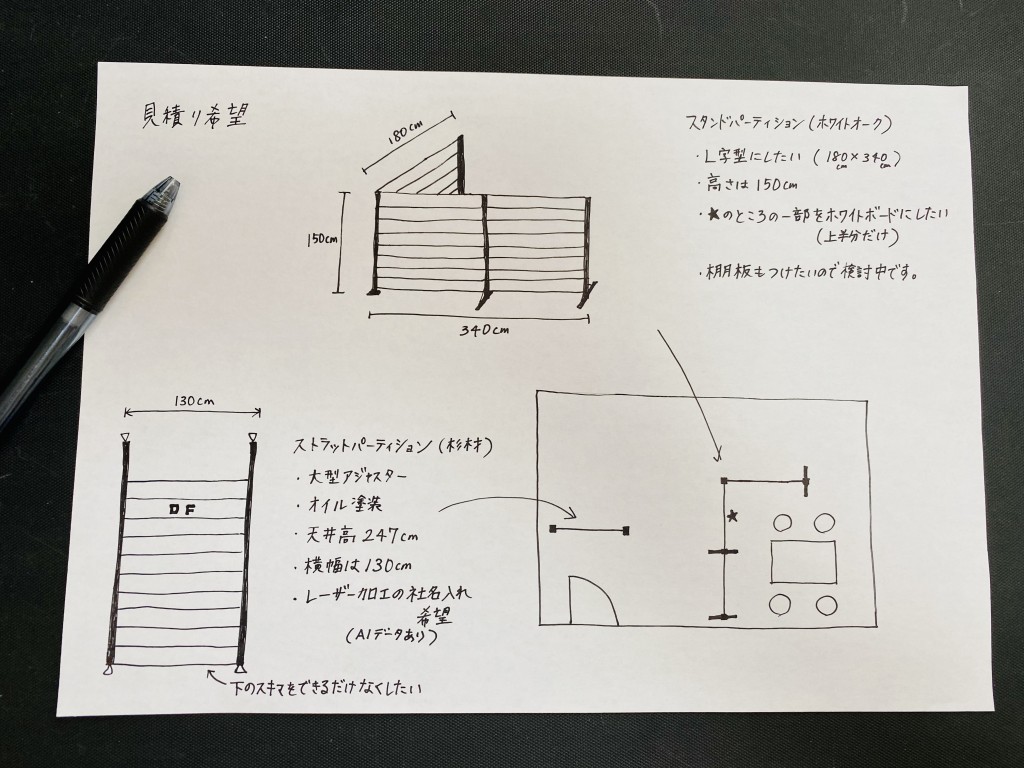 見積り希望
180cm
150cm
340cm
スタンドパーティション(ホワイトオーク)
・L字型にしたい (180cm×340cm)
・高さは150cm
・★のところの一部をホワイトボードにしたい
(上半分だけ)
・棚板もつけたいので検討中です。
130cm
DF
ストラットパーティション(杉材)
・大型アジャスター
・オイル塗装
・天井高247cm
・横幅は130cm
・レーザー加工の社名入れ
希望
(AIデータあり)
下のスキマをできるだけなくしたい
★